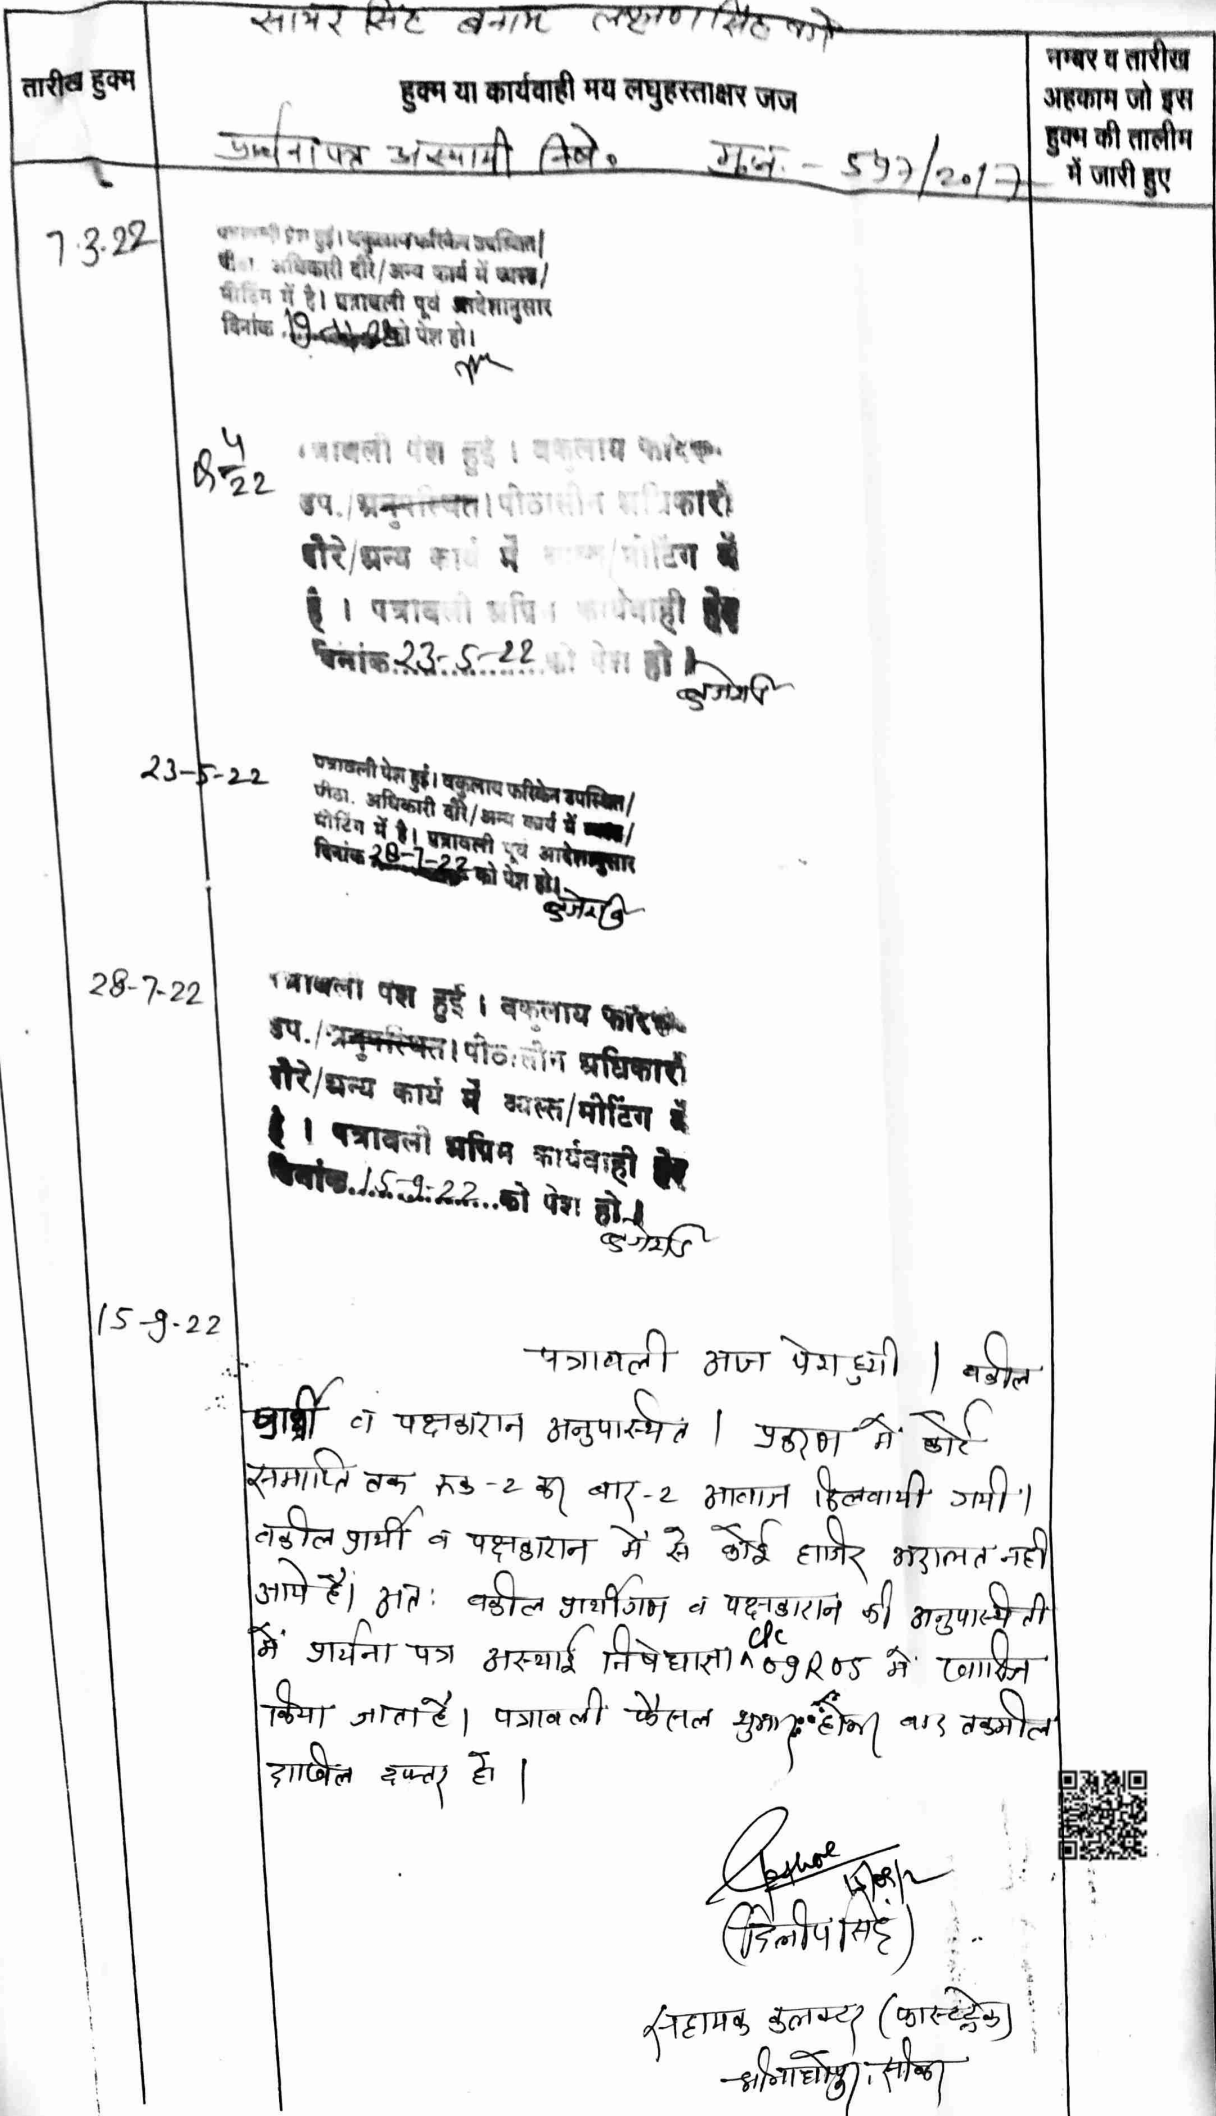 सायर सिंह बनाम लक्ष्मण सिंह वगै
तारीख हुक्म
हुक्म या कार्यवाही मय लघुहस्ताक्षर जज
नम्बर व तारीख
अहकाम जो इस
हुक्म की तालीम
में जारी हुए
प्रार्थना पत्र अस्थायी निषे० मु.न. - 597/2017
7.3.22
पत्रावली पेश हुई। वकुलाय फरिकेन उपस्थित/
पीठा. अधिकारी दौरे/अन्य कार्य में व्यस्त/
मीटिंग में है। पत्रावली पूर्व आदेशानुसार
दिनांक को पेश हो।
4
22
पत्रावली पेश हुई । वकुलाय फरिक.
उप./अनुपस्थित। पीठासीन अधिकारी
दौरे/अन्य कार्य में व्यस्त/मीटिंग में
है । पत्रावली अग्रिम कार्यवाही हेतु
दिनांक 23-5-22 को पेश हो ।
23-5-22
पत्रावली पेश हुई। वकुलाय फरिकेन उपस्थित/
पीठा. अधिकारी दौरे/अन्य कार्य में व्यस्त/
मीटिंग में है। पत्रावली पूर्व आदेशानुसार
दिनांक 28-7-22 को पेश हो।
28-7-22
पत्रावली पेश हुई । वकुलाय फरिक.
उप./अनुपस्थित। पीठासीन अधिकारी
दौरे/अन्य कार्य में व्यस्त/मीटिंग में
है । पत्रावली अग्रिम कार्यवाही हेतु
दिनांक 15-9-22 को पेश हो ।
15-9-22
पत्रावली आज पेश हुयी । वकील
प्रार्थी व पक्षकारान अनुपस्थित । प्रकरण में कोर्ट
समाप्ति तक रुक-2 कर बार-2 आवाज दिलवायी गयी।
वकील प्रार्थी व पक्षकारान में से कोई हाजिर अदालत नही
आये है। अत: वकील प्रार्थीगण व पक्षकारान की अनुपस्थिती
में प्रार्थना पत्र अस्थाई निषेधाज्ञा CPC O9R05 में खारिज
किया जाता है। पत्रावली फैसल शुमार होकर बाद तकमील
दाखिल दफ्तर हो ।
(दिलीप सिंह)
सहायक कलक्टर (फास्टट्रेक)
श्रीमाधोपुर, सीकर